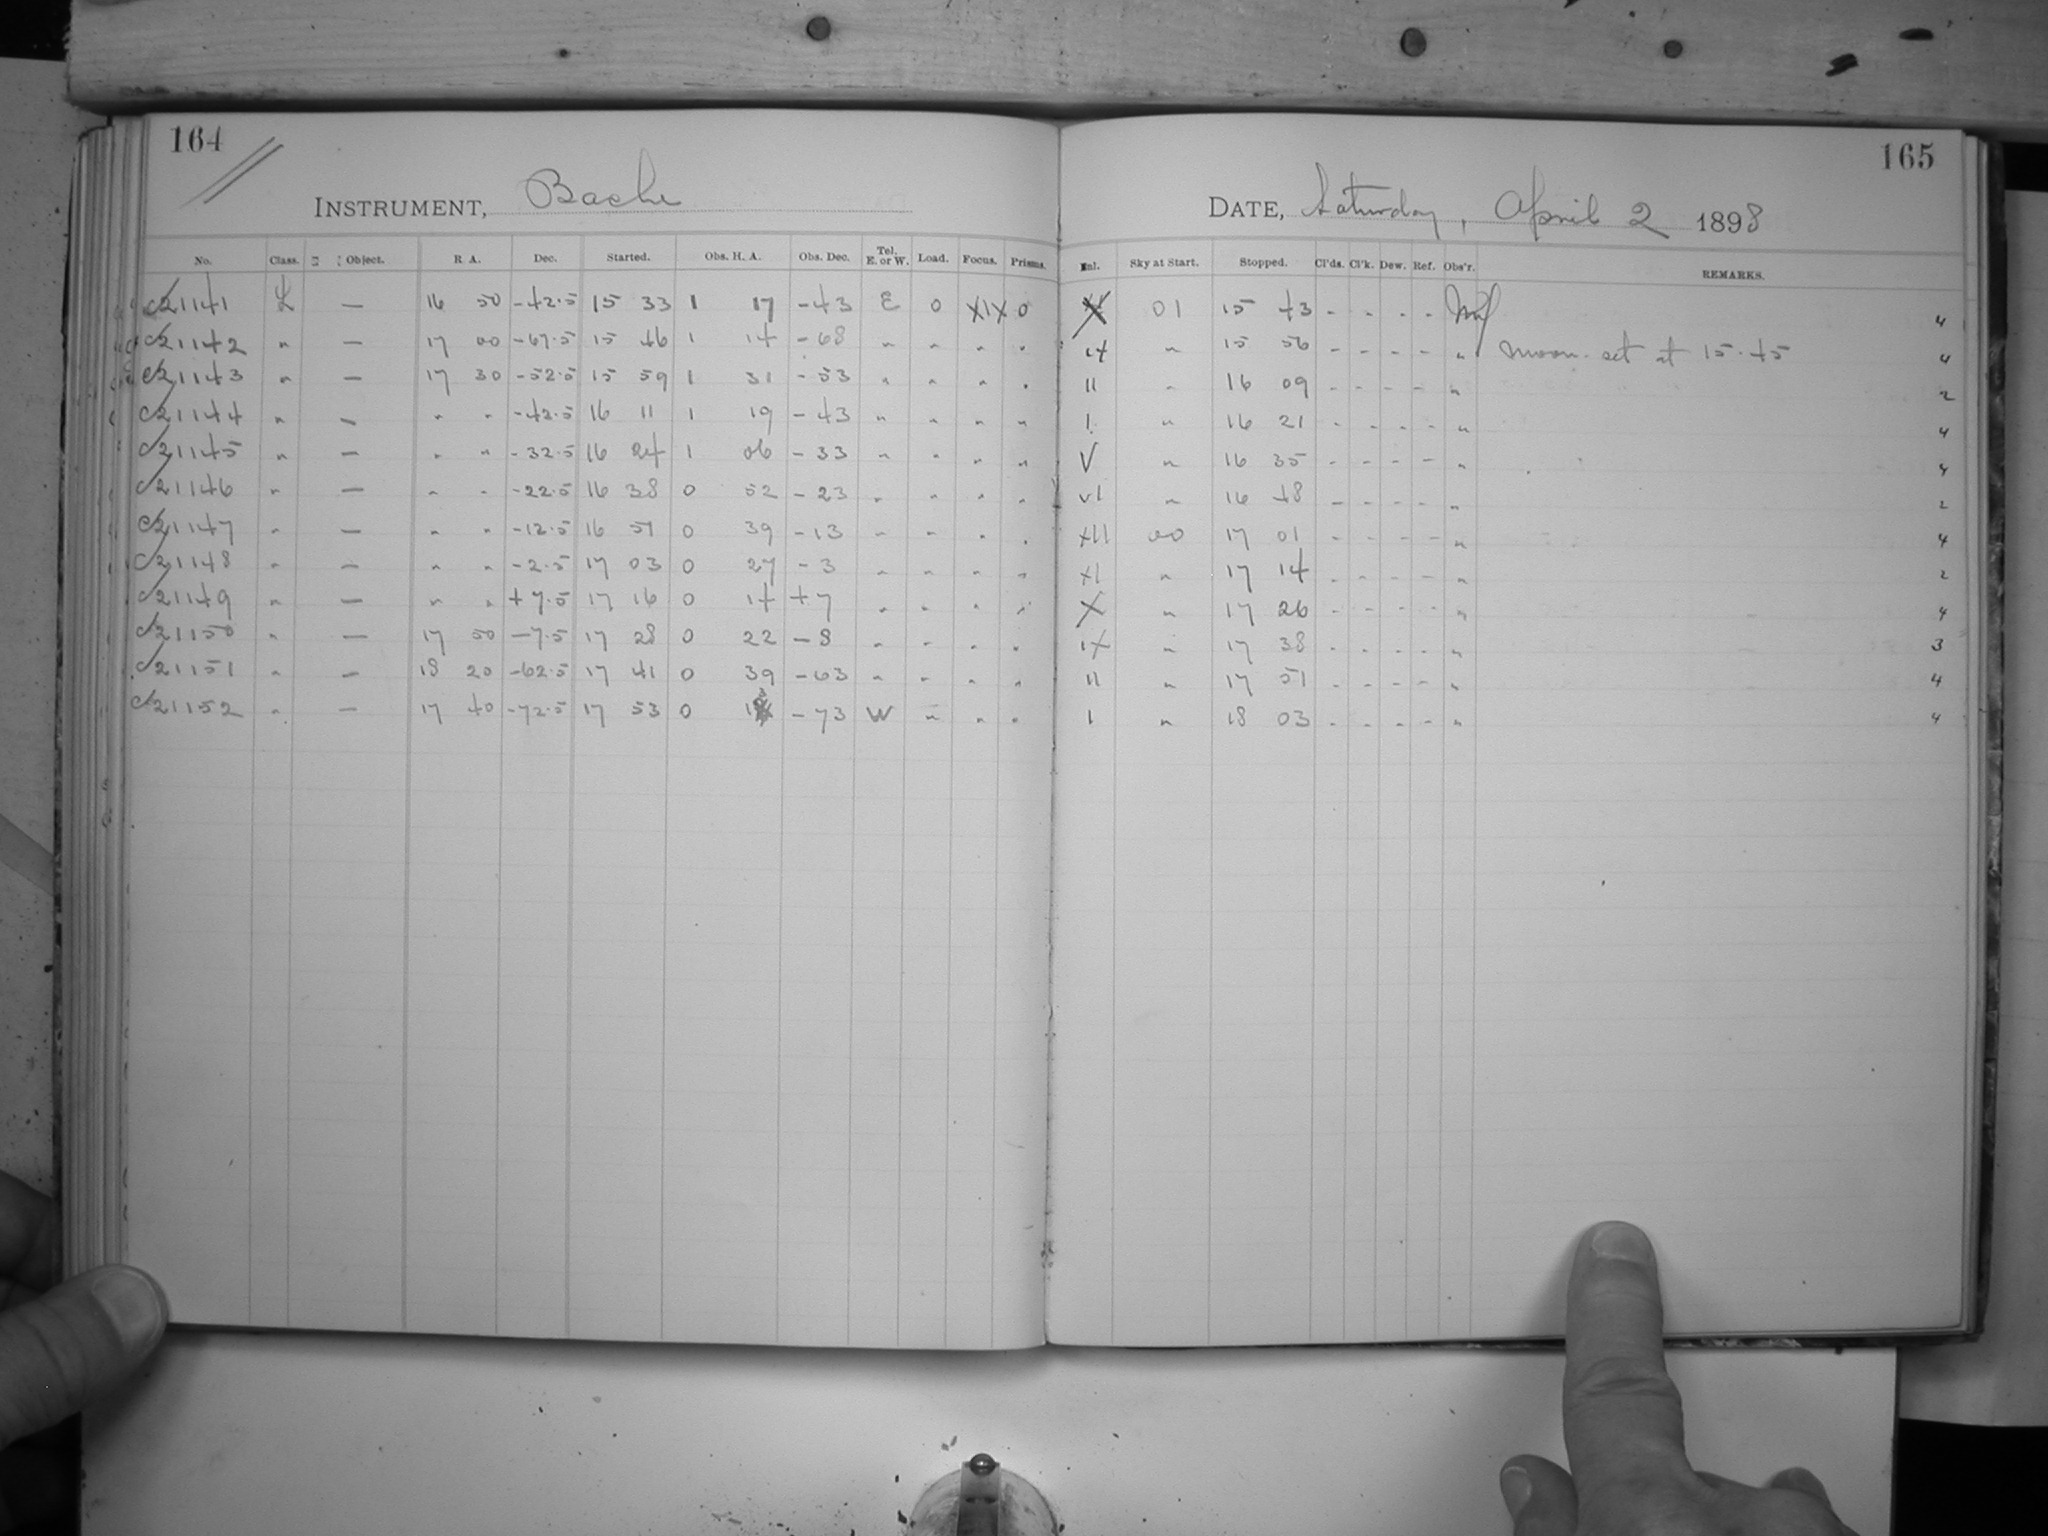 164
165
INSTRUMENT, Bache
DATE, Saturday, April 2 1898
No. Class. Object. R A. Dec. Started. Obs. H. A. Obs. Dec. Tel. E. or W. Load. Focus. Prisms. Enl. Sky at Start. Stopped. Cl'ds. Cl'k. Dew. Ref. Obs'r. REMARKS.
C21141 L — 16 50 -42.5 15 33 1 17 -43 E 0 XIX 0 01 15 43 - - - - 4
C21142 " — 17 00 -67.5 15 46 1 14 -68 " " " " IX " 15 56 - - - - " moon set at 15.45 4
C21143 " — 17 30 -52.5 15 59 1 31 -53 " " " " II " 16 09 - - - - " 2
C21144 " — " " -42.5 16 11 1 19 -43 " " " " I " 16 21 - - - - " 4
C21145 " — " " -32.5 16 24 1 06 -33 " " " " V " 16 35 - - - - " 4
C21146 " — " " -22.5 16 38 0 52 -23 " " " " VI " 16 48 - - - - " 2
C21147 " — " " -12.5 16 51 0 39 -13 " " " " XII 00 17 01 - - - - " 4
C21148 " — " " -2.5 17 03 0 27 -3 " " " " XI " 17 14 - - - - " 2
C21149 " — " " +7.5 17 16 0 14 +7 " " " " X " 17 26 - - - - " 4
C21150 " — 17 50 -7.5 17 28 0 22 -8 " " " " IX " 17 38 - - - - " 3
C21151 " — 18 20 -62.5 17 41 0 39 -63 " " " " II " 17 51 - - - - " 4
C21152 " — 17 40 -72.5 17 53 0 13 -73 W " " " I " 18 03 - - - - " 4